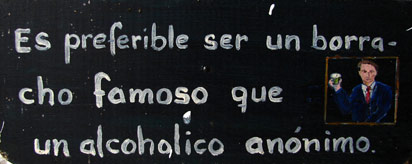 Es preferible ser un borra-
cho famoso que
un alcoholico anónimo.